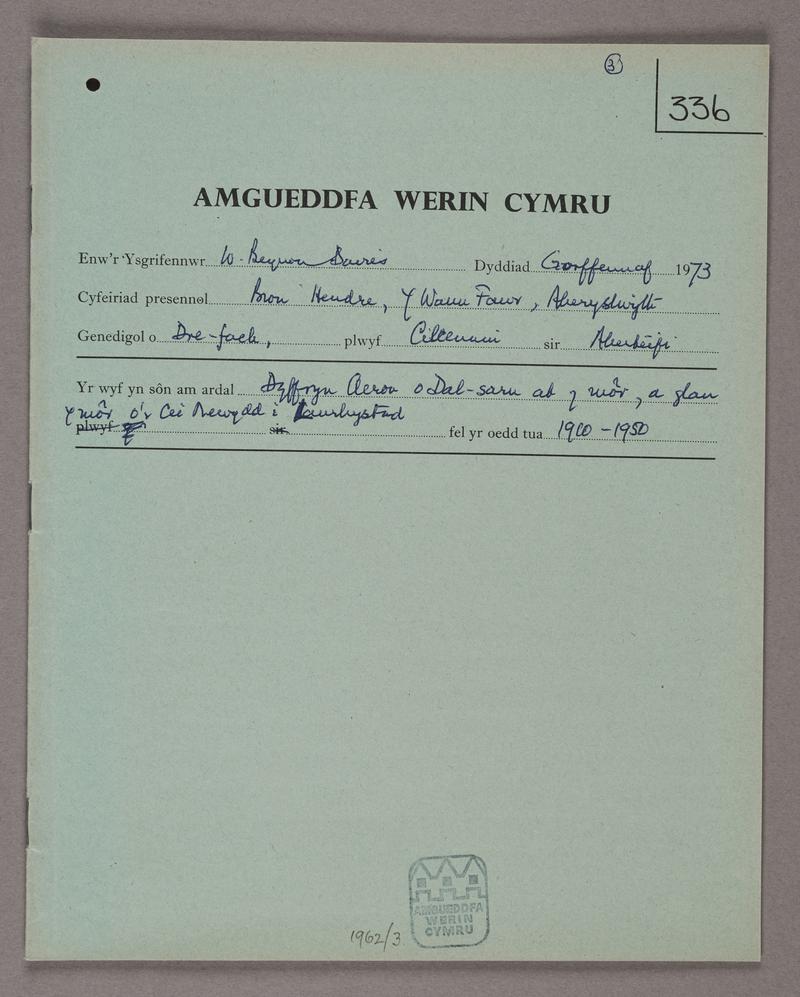 3
336
AMGUEDDFA WERIN CYMRU
Enw'r Ysgrifennwr W. Beynon Davies Dyddiad Gorffennaf 1973
Cyfeiriad presennol Bron Hendre, Y Waun Fawr, Aberystwyth
Genedigol o Dre-fach, plwyf Cilcennin sir Aberteifi
Yr wyf yn sôn am ardal Dyffryn Aeron o Dal-sarn at y môr, a glan
y môr o'r Cei Newydd i Lanrhystud
plwyf sir fel yr oedd tua 1900-1950
AMGUEDDFA
WERIN
CYMRU
1962/3